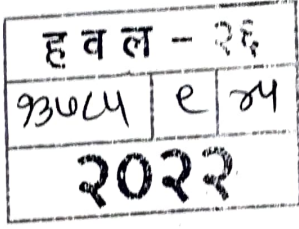 हवल - २६
१३७८५ ९ २५
२०२२